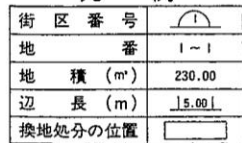 街区番号 1
地番 1~1
地積(㎡) 230.00
辺長(m) 5.00
換地処分の位置